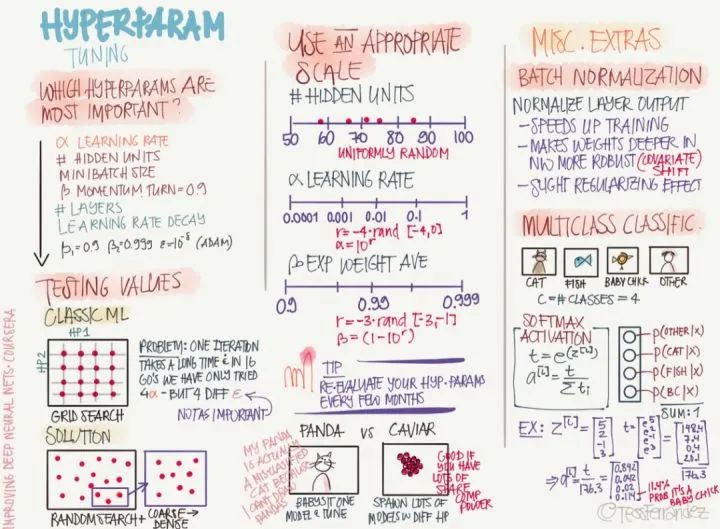 HYPERPARAM
TUNING
WHICH HYPERPARAMS ARE
MOST IMPORTANT?
α LEARNING RATE
# HIDDEN UNITS
MINIBATCH SIZE
β MOMENTUM TURN = 0.9
# LAYERS
LEARNING RATE DECAY
β₁=0.9 β₂=0.999 ε=10⁻⁸ (ADAM)
TESTING VALUES
CLASSIC ML
HP1
HP2
GRID SEARCH
PROBLEM: ONE ITERATION
TAKES A LONG TIME & IN 16
GO'S WE HAVE ONLY TRIED
4α - BUT 4 DIFF ε
NOT AS IMPORTANT
SOLUTION
RANDOM SEARCH + COARSE →
DENSE
IMPROVING DEEP NEURAL NETS · COURSERA
USE AN APPROPRIATE
SCALE
# HIDDEN UNITS
50 60 70 80 90 100
UNIFORMLY RANDOM
α LEARNING RATE
0.0001 0.001 0.01 0.1 1
r = -4·rand [-4,0]
α = 10ʳ
β EXP WEIGHT AVE
0.9 0.99 0.999
r = -3·rand [-3,-1]
β = (1-10ʳ)
TIP
RE-EVALUATE YOUR HYP. PARAMS
EVERY FEW MONTHS
PANDA VS CAVIAR
MY PANDA
IS ACTUALLY
A MISCLASSIFIED
CAT BECAUSE
I CAN'T DRAW
PANDAS
BABYSIT ONE
MODEL & TUNE
GOOD IF
YOU HAVE
LOTS OF
SPARE
COMP
POWER
SPAWN LOTS OF
MODELS W DIFF HP
MISC. EXTRAS
BATCH NORMALIZATION
NORMALIZE LAYER OUTPUT
- SPEEDS UP TRAINING
- MAKES WEIGHTS DEEPER IN
NW MORE ROBUST (COVARIATE)
SHIFT
- SLIGHT REGULARIZING EFFECT
MULTICLASS CLASSIFIC.
CAT FISH BABY CHICK OTHER
C = # CLASSES = 4
SOFTMAX
ACTIVATION
t = e^(z^[L])
a^[L] = t / Σtᵢ
P(OTHER|X)
P(CAT|X)
P(FISH|X)
P(BC|X)
SUM: 1
EX: Z^[L] = [5 2 -1 3] t = [e⁵ e² e⁻¹ e³] = [148.4 7.4 0.4 20.1]
176.3
⇒ a^[L] = t / 176.3 = [0.842 0.042 0.02 0.114]
11.4%
PROB IT'S A
BABY CHICK
@TessFerrandez